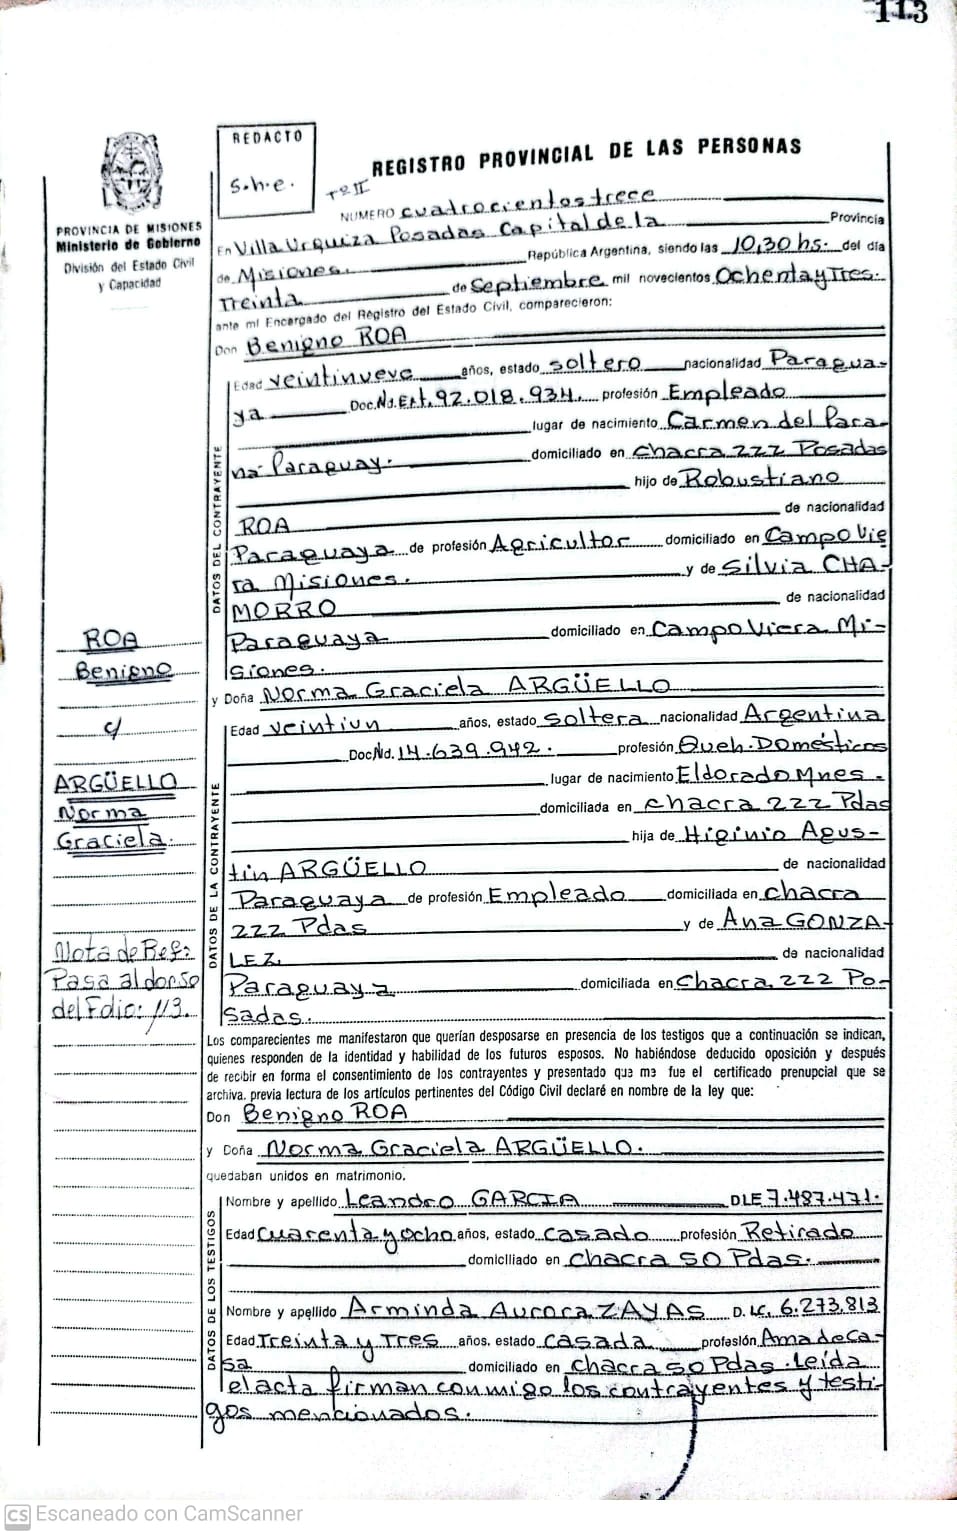 113
REDACTO
S.h.e.
REGISTRO PROVINCIAL DE LAS PERSONAS
Tº II
NUMERO cuatrocientos trece
PROVINCIA DE MISIONES
Ministerio de Gobierno
División del Estado Civil
y Capacidad
En Villa Urquiza Posadas Capital de la Provincia
de Misiones. República Argentina, siendo las 10,30 hs. del día
Treinta de Septiembre mil novecientos Ochenta y Tres.
ante mí Encargado del Registro del Estado Civil, comparecieron:
Don Benigno ROA
DATOS DEL CONTRAYENTE
Edad veintinueve años, estado soltero nacionalidad Paragua-
ya Doc.Nd.Ext. 92.018.934. profesión Empleado
lugar de nacimiento Carmen del Para-
ná- Paraguay. domiciliado en chacra 222 Posadas
hijo de Robustiano
ROA de nacionalidad
Paraguaya de profesión Agricultor domiciliado en Campo Vie
ra Misiones. y de Silvia CHA-
MORRO de nacionalidad
Paraguaya domiciliado en Campo Viera Mi-
siones.
y Doña Norma Graciela ARGÜELLO
DATOS DE LA CONTRAYENTE
Edad veintiun años, estado soltera nacionalidad Argentina
Doc.Nd. 14.639.942. profesión Queh. Domésticos
lugar de nacimiento Eldorado Mnes.
domiciliada en chacra 222 Pdas
hija de Higinio Agus-
tin ARGÜELLO de nacionalidad
Paraguaya de profesión Empleado domiciliada en chacra
222 Pdas y de Ana GONZA-
LEZ de nacionalidad
Paraguaya domiciliada en Chacra 222 Po-
sadas.
ROA
Benigno
c/
ARGÜELLO
Norma
Graciela.
Nota de Ref:
Pasa al dorso
del Folio: 113.
Los comparecientes me manifestaron que querían desposarse en presencia de los testigos que a continuación se indican,
quienes responden de la identidad y habilidad de los futuros esposos. No habiéndose deducido oposición y después
de recibir en forma el consentimiento de los contrayentes y presentado que me fue el certificado prenupcial que se
archiva. previa lectura de los artículos pertinentes del Código Civil declaré en nombre de la ley que:
Don Benigno ROA
y Doña Norma Graciela ARGÜELLO.
quedaban unidos en matrimonio.
DATOS DE LOS TESTIGOS
Nombre y apellido Leandro GARCIA DLE 7.487.471.
Edad cuarenta y ocho años, estado casado profesión Retirado
domiciliado en chacra 50 Pdas.
Nombre y apellido Arminda Aurora ZAYAS D. LC. 6.273.813
Edad Treinta y Tres años, estado casada profesión Ama de Ca-
sa domiciliado en chacra 50 Pdas. Leída
el acta firman conmigo los contrayentes y testi-
gos mencionados.
CS Escaneado con CamScanner